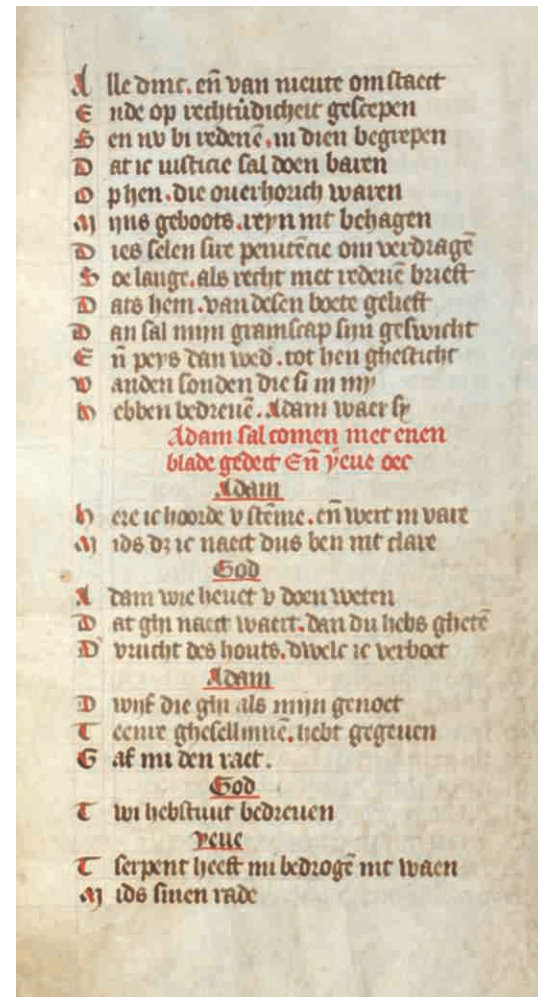 A lle dinc. en̄ van nieute om staect
E nde op rechtūdicheit gescepen
B en nv bi redenē. in dien begrepen
D at ic iusticie sal doen baren
O p hen. die ouerhorich waren
M ijns geboots. reyn nit behagen
D ies selen sire penitēcie om verdragē
H oe lange. als recht met redenē brieft
D ats hem. van desen boete gelieft
D an sal mijn gramscap sijn geswicht
E n̄ peys dan wed. tot hen ghesticht
V anden sonden die si in my
H ebben bedreuē. Adam waer sy
Adam sal comen met enen
blade gedect En̄ yeue oec
Adam
H ere ic hoorde v stēme. en̄ wert in vare
M ids dz ic naect dus ben nit clare
God
A dam wie heuet v doen weten
D at ghi naect waert. dan du hebs ghetē
D' vrucht des houts. dwelc ic verboet
Adam
D wijf die ghi als mijn genoet
T eenre ghesellinnē. hebt gegeuen
G af mi den raet.
God
T wi hebstuut bedreuen
yeue
T serpent heeft mi bedrogē nit waen
M ids sinen rade